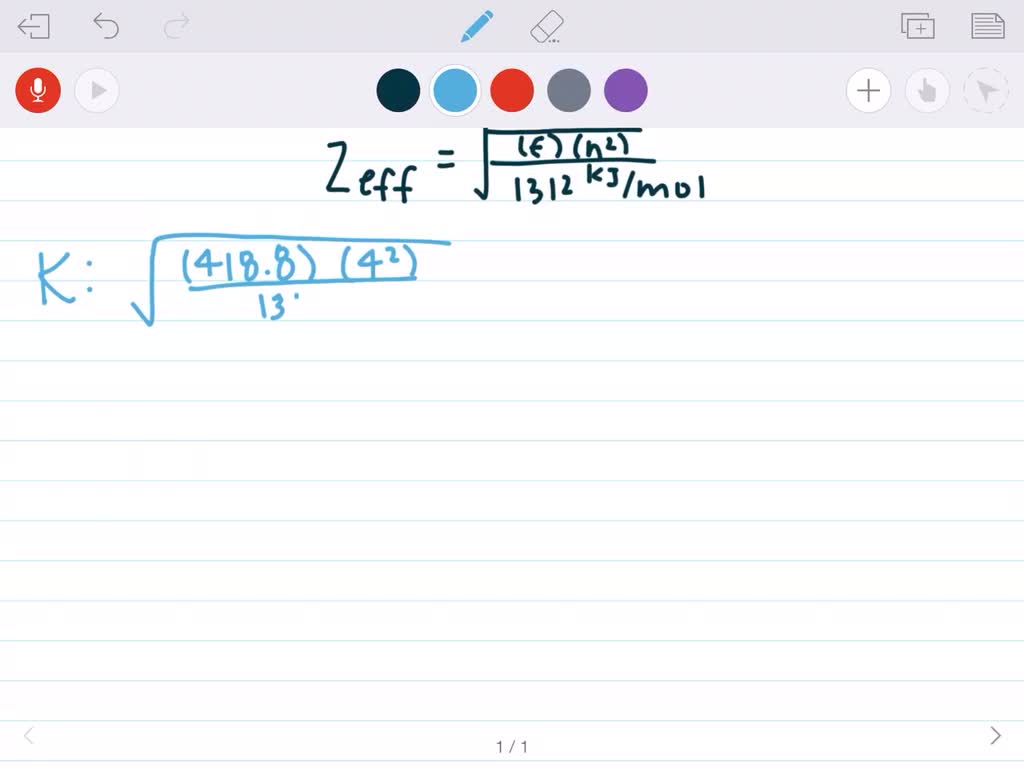 Zeff = √(E)(n²) / 1312 kJ/mol
K: √(418.8) (4²) / 13
1 / 1